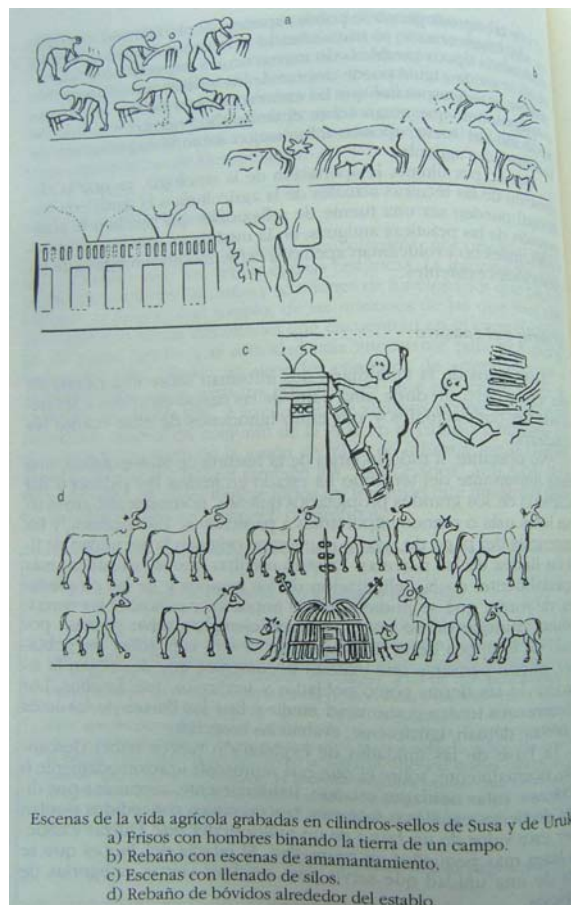 a
b
c
d
Escenas de la vida agrícola grabadas en cilindros-sellos de Susa y de Uruk
a) Frisos con hombres binando la tierra de un campo.
b) Rebaño con escenas de amamantamiento.
c) Escenas con llenado de silos.
d) Rebaño de bóvidos alrededor del establo.